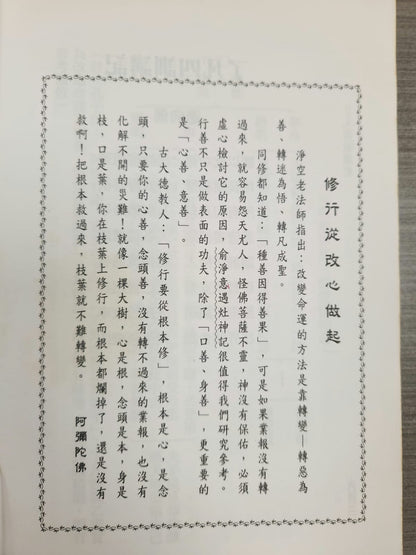 修行從改心做起
淨空老法師指出：改變命運的方法是靠轉變—轉惡為
善、轉迷為悟、轉凡成聖。
同修都知道：「種善因得善果」，可是如果業報沒有轉
過來，就容易怨天尤人，怪佛菩薩不靈，神沒有保佑，必須
虛心檢討它的原因，俞淨意遇灶神記很值得我們研究參考。
行善不只是做表面的功夫，除了「口善、身善」，更重要的
是「心善、意善」。
古大德教人：「修行要從根本修」，根本是心，是念
頭，只要你的心善，念頭善，沒有轉不過來的業報，也沒有
化解不開的災難！就像一棵大樹，心是根，念頭是本，身是
枝，口是葉，你在枝葉上修行，而根本都爛掉了，還是沒有
救啊！把根本救過來，枝葉就不難轉變。
阿彌陀佛